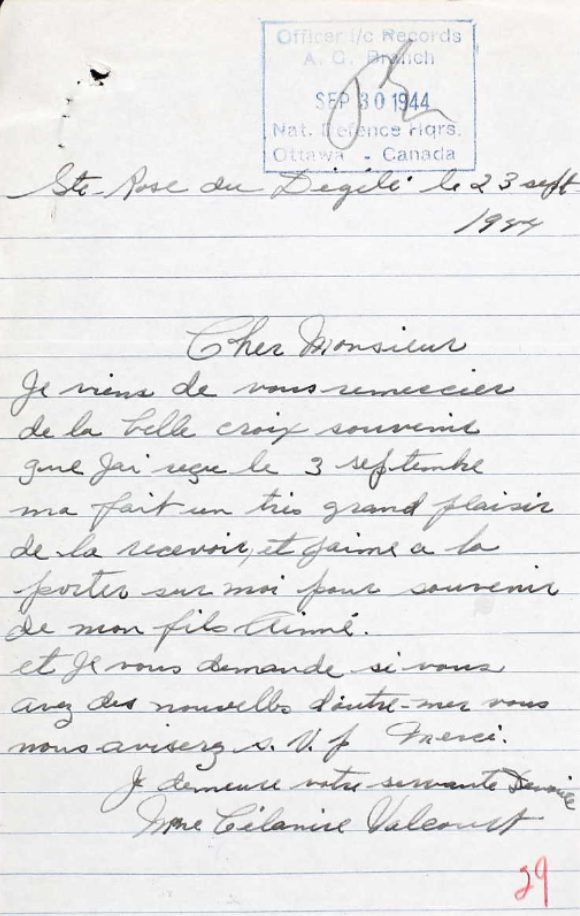 Officer i/c Records
A. G. Branch
SEP 30 1944
Nat. Defence Hqrs.
Ottawa - Canada
Ste-Rose du Dégelé le 23 sept
1944
Cher Monsieur
Je viens de vous remercier
de la belle croix souvenir
que Jai reçue le 3 septembre
ma fait un très grand plaisir
de la recevoir, et jaime a la
porter sur moi pour souvenir
de mon fils Aimé.
et Je vous demande si vous
avez des nouvelles d'outre-mer vous
nous aviserez s. V. p Merci.
Je demeure votre servante Devouée
Mme Célanire Valcourt
29